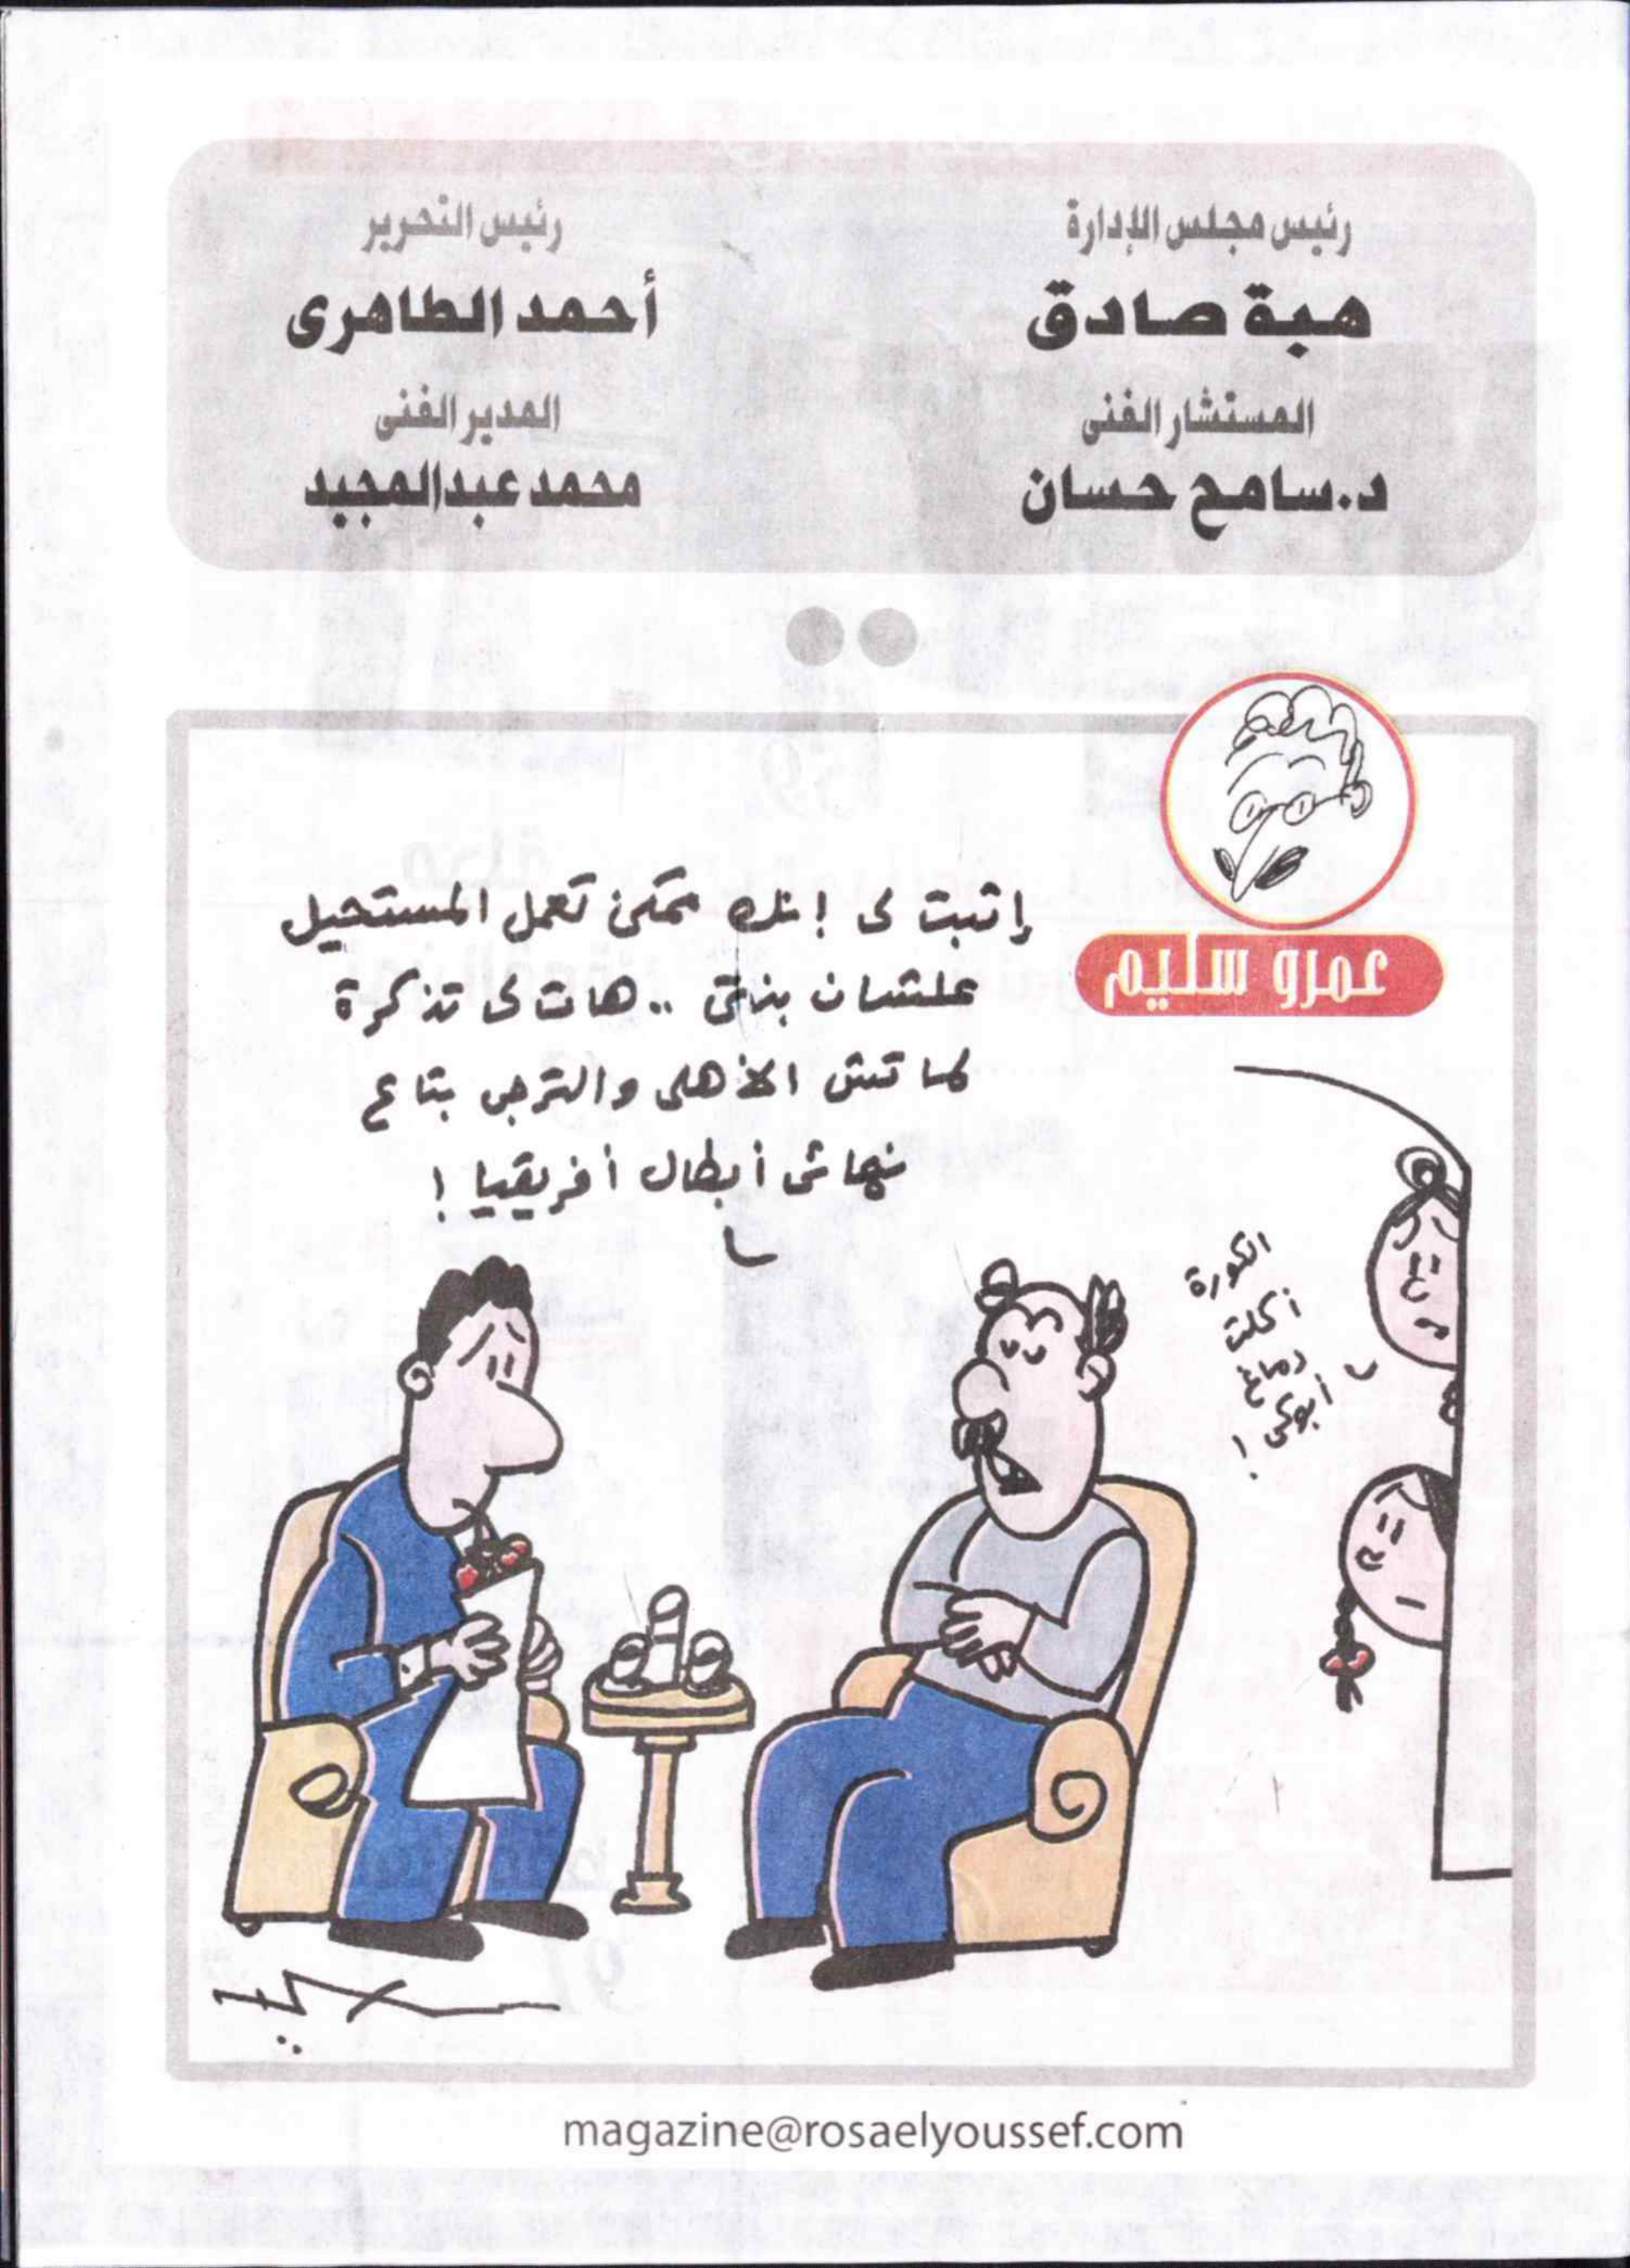 رئيس مجلس الإدارة
هبة صادق
المستشار الفنى
د.سامح حسان
رئيس التحرير
أحمد الطاهرى
المدير الفنى
محمد عبدالمجيد
عمرو سليم
إثبت لى إنك ممكن تعمل المستحيل
علشان بنتى .. هات لى تذكرة
لماتش الأهلى والترجى بتاع
نهائى أبطال أفريقيا !
الكورة
أكلت
دماغ
أبوكى !
magazine@rosaelyoussef.com